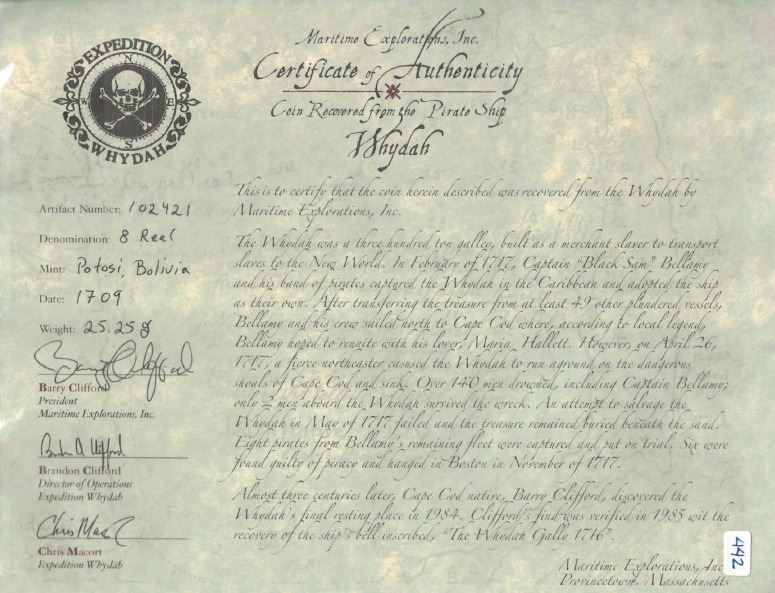 Maritime Explorations, Inc.
Certificate of Authenticity
Coin Recovered from the Pirate Ship
Whydah
EXPEDITION
N
W E
S
WHYDAH
Artifact Number: 102421
Denomination: 8 Real
Mint: Potosi, Bolivia
Date: 1709
Weight: 25.25g
Barry Clifford
Barry Clifford
President
Maritime Explorations, Inc.
Brandon Clifford
Director of Operations
Expedition Whydah
Chris Macort
Expedition Whydah
This is to certify that the coin herein described was recovered from the Whydah by
Maritime Explorations, Inc.
The Whydah was a three hundred ton galley, built as a merchant slaver to transport
slaves to the New World. In February of 1717, Captain "Black Sam" Bellamy
and his band of pirates captured the Whydah in the Caribbean and adopted the ship
as their own. After transferring the treasure from at least 49 other plundered vessels,
Bellamy and his crew sailed north to Cape Cod where, according to local legend,
Bellamy hoped to reunite with his lover, Maria Hallett. However, on April 26,
1717, a fierce northeaster casused the Whydah to run aground on the dangerous
shoals of Cape Cod and sink. Over 140 men drowned, including Captain Bellamy;
only 2 men aboard the Whydah survived the wreck. An attempt to salvage the
Whydah in May of 1717 failed and the treasure remained buried beneath the sand.
Eight pirates from Bellamy's remaining fleet were captured and put on trial. Six were
found guilty of piracy and hanged in Boston in November of 1717.
Almost three centuries later, Cape Cod native, Barry Clifford, discovered the
Whydah's final resting place in 1984. Clifford's find was verified in 1985 wit the
recovery of the ship's bell inscribed, "The Whydah Gally 1716".
Maritime Explorations, Inc
Provincetown, Massachusetts
442